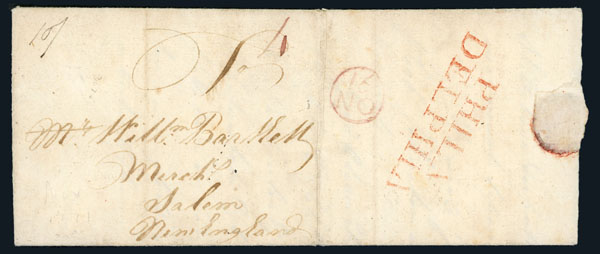 To
Mr. Willm Bartlett
Mercht
Salem
New England
16
NO
PHILA
DELPHIA